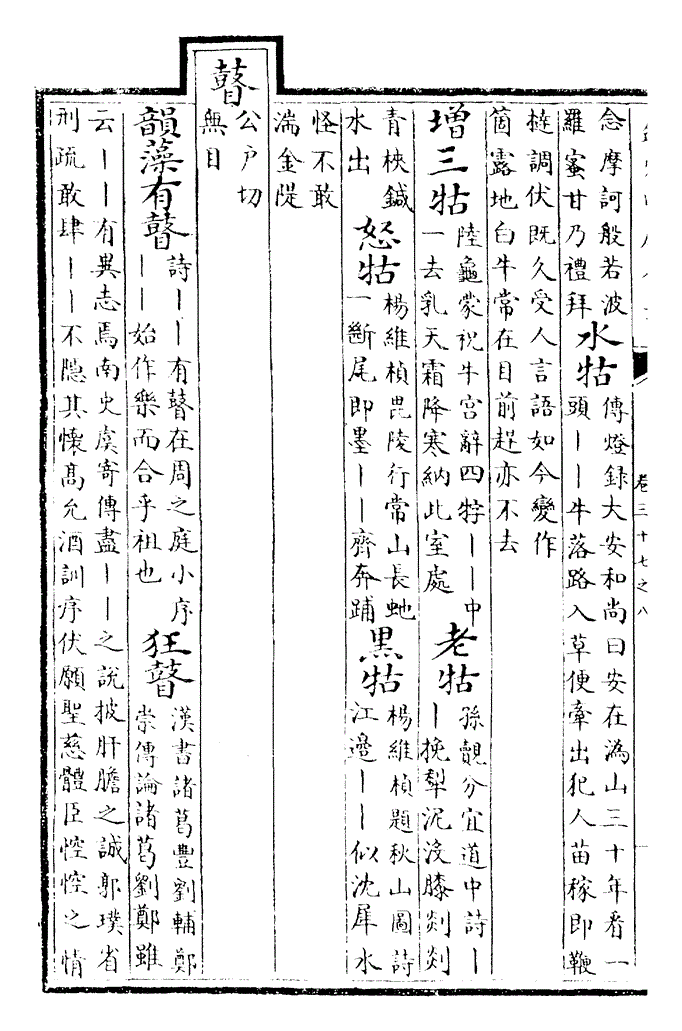 卷三十七之八
念摩訶般若波
羅蜜甘乃禮拜
水牯
傳燈錄大安和尚曰安在溈山三十年看一
頭丨丨牛落路入草便牽出犯人苗稼即鞭
撻調伏既久受人言語如今變作
箇露地白牛常在目前趕亦不去
增三牯
陸龜蒙祝牛宮辭四牸丨丨中
一去乳天霜降寒納此室處
老牯
孫覿分宜道中詩丨
丨挽犁沉没膝剡剡
青梜鍼
水出
怒牯
楊維楨毘陵行常山長虵
一斷尾即墨丨丨齊奔踊
黑牯
楊維楨題秋山圖詩
江邊丨丨似沈犀水
怪不敢
湍金隄
瞽
公戶切
無目
韻藻有瞽
詩丨丨有瞽在周之庭小序
丨丨始作樂而合乎祖也
狂瞽
漢書諸葛豐劉輔鄭
崇傳論諸葛劉鄭雖
云丨丨有異志焉南史虞寄傳盡丨丨之說披肝膽之誠郭璞省
刑疏敢肆丨丨不隱其懷高允酒訓序伏願聖慈體臣悾悾之情